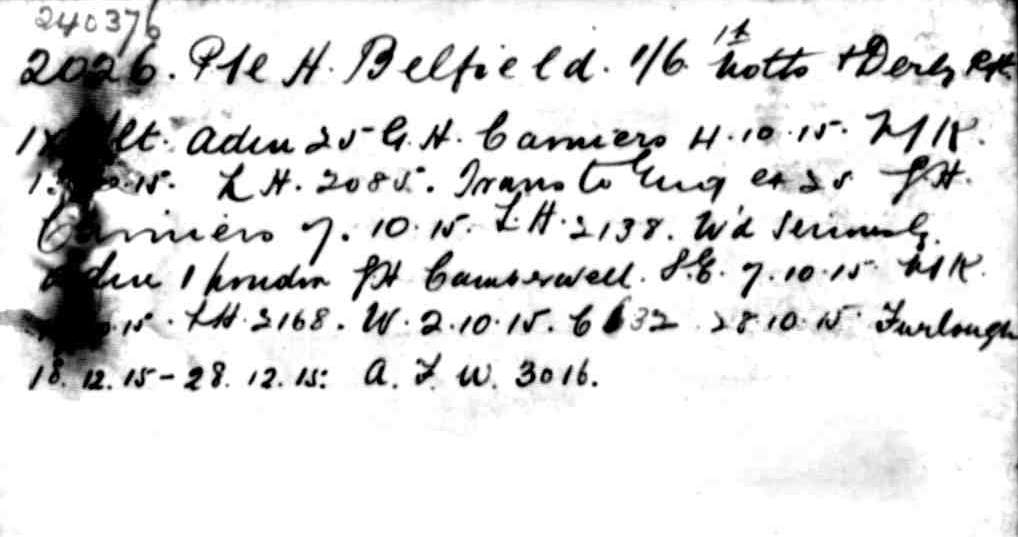 240376
2026. Pte H. Belfield. 1/6 Notts & Derby Rgt.
lt. Adm 25 G. H. Camiers 4.10.15. N/K.
.15. L H. 2085. Trans to Eng ex 25 G H.
Camiers 7. 10. 15. L. H. 2138. W'd Seriously.
Adm 1 London G H Camberwell. S.E. 7.10.15 N/K.
.15. L H. 2168. W. 2.10.15. C 632 28.10.15 Furlough
18.12.15-28.12.15: A. F. W. 3016.